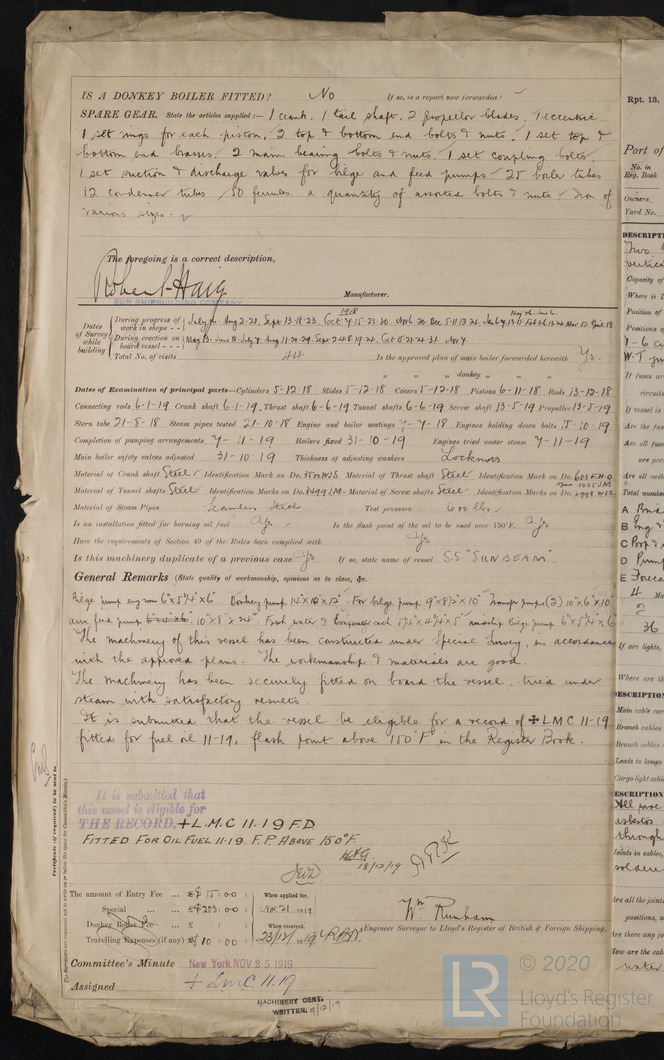 IS A DONKEY BOILER FITTED? No If so, is a report now forwarded?
SPARE GEAR. State the articles supplied:— 1 crank, 1 tail shaft, 2 propellor blades, 1 eccentric
1 set rings for each piston, 2 top & bottom end bolts & nuts, 1 set top &
bottom end brasses, 2 main bearing bolts & nuts, 1 set coupling bolts,
1 set suction & discharge valves for bilge and feed pumps, 25 boiler tubes
12 condenser tubes, 50 ferrules, a quantity of assorted bolts & nuts, Iron of
various sizes.
The foregoing is a correct description,
Robert Haig
SUN SHIPBUILDING COMPANY Manufacturer.
Dates of Survey while building
During progress of work in shops - - 1918
During erection on board vessel - - -
Total No. of visits 44 Is the approved plan of main boiler forwarded herewith Yes
" " " donkey " " "
Dates of Examination of principal parts—Cylinders 5-12-18 Slides 5-12-18 Covers 5-12-18 Pistons 6-11-18 Rods 13-12-18
Connecting rods 6-1-19 Crank shaft 6-1-19 Thrust shaft 6-6-19 Tunnel shafts 6-6-19 Screw shaft 13-5-19 Propeller 13-5-19
Stern tube 21-8-18 Steam pipes tested 21-10-18 Engine and boiler seatings 7-7-18 Engines holding down bolts 15-10-19
Completion of pumping arrangements 7-11-19 Boilers fixed 31-10-19 Engines tried under steam 7-11-19
Main boiler safety valves adjusted 31-10-19 Thickness of adjusting washers Locknuts
Material of Crank shaft Steel Identification Mark on Do. 3500 WJS Material of Thrust shaft Steel Identification Mark on Do. 603 F.H.O
Material of Tunnel shafts Steel Identification Marks on Do. 3499 JM Material of Screw shafts Steel Identification Marks on Do. 2998 WJS
Material of Steam Pipes Seamless Steel Test pressure 600 lbs
Is an installation fitted for burning oil fuel Yes Is the flash point of the oil to be used over 150°F. Yes
Have the requirements of Section 49 of the Rules been complied with Yes
Is this machinery duplicate of a previous case Yes If so, state name of vessel S.S. "SUNBEAM"
General Remarks (State quality of workmanship, opinions as to class, &c.
Bilge pump eng room 6"x5¾"x6" Donkey pump 14"x10"x12" For bilge pump 9"x8½"x10" Transfer pumps (2) 10"x6"x10"
aux feed pump 10"x8"x24" Fresh water & Evaporator each 5¼"x4¾"x5" Bilge pump 6"x5¾"x6
The machinery of this vessel has been constructed under Special Survey, in accordance
with the approved plans. The workmanship & materials are good.
The machinery has been securely fitted on board the vessel, tried under
steam with satisfactory results.
It is submitted that the vessel be eligible for a record of ✠ L M C 11-19
fitted for fuel oil 11-19, flash point above 150°F in the Register Book.
It is submitted that
this vessel is eligible for
THE RECORD. + L.M.C 11.19 F.D.
FITTED FOR OIL FUEL 11.19. F.P. ABOVE 150°F.
18/12/19
The amount of Entry Fee ... $ 15:00: When applied for,
Special ... $ 253:00: Nov. 21 1919
Donkey Boiler Fee ... £ : : When received,
Travelling Expenses (if any) $ 10:00: 23/12/1919
Wm Runham
Engineer Surveyor to Lloyd's Register of British & Foreign Shipping.
Committee's Minute New York NOV 25 1919
Assigned + LMC 11.19
MACHINERY CERT.
WRITTEN. 9/12/19
Certificate (if required) to be sent to
The Surveyors are requested not to write on or below the space for Committee's Minute.
Rpt. 13.
Port of
No. in
Reg. Book
Owners
Yard No.
DESCRIPT
Two
vertica
Capacity of
Where is
Position of
Positions o
If fuses ar
circuits
If vessel is
Are the fus
Are all fuse
are per
Are all swit
Total numbe
A
B Eng
C Prop
D Pump
E Foreca
4
2
36
If arc lights,
Where are th
DESCRIPTION
Main cable car
Branch cables
Branch cables
Leads to lamps
Cargo light cable
DESCRIPTION
All wire
asbestos
through
Joints in cables,
soldere
Are all the joints
positions,
Are there any jo
How are the cab
water
LR
© 2020
Lloyd's Register
Foundation